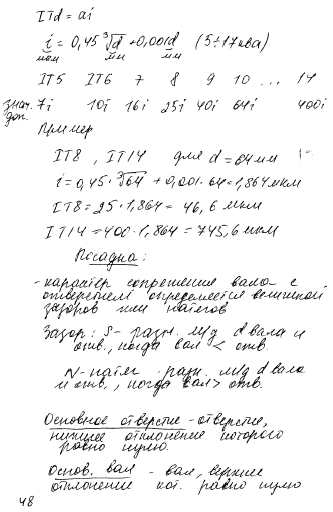 ITd = ai
i = 0,45 ∛d + 0,001d (5÷17ква)
мкм мм мм
IT5 IT6 7 8 9 10 ... 14
знач. доп. 7i 10i 16i 25i 40i 64i 400i
Пример
IT8, IT14 для d = 64мм
i = 0,45 · ∛64 + 0,001 · 64 = 1,864 мкм
IT8 = 25 · 1,864 = 46,6 мкм
IT14 = 400 · 1,864 = 745,6 мкм
Посадка:
- характер сопряжения вала с
отверстием определяется величиной
зазоров или натягов
Зазор: S - разн. м/д d вала и
отв., когда вал < отв.
N - натяг разн. м/д d вала
и отв., когда вал > отв.
Основное отверстие - отверстие,
нижнее отклонение которого
равно нулю.
Основ. вал - вал, верхнее
отклонение кот. равно нулю
48